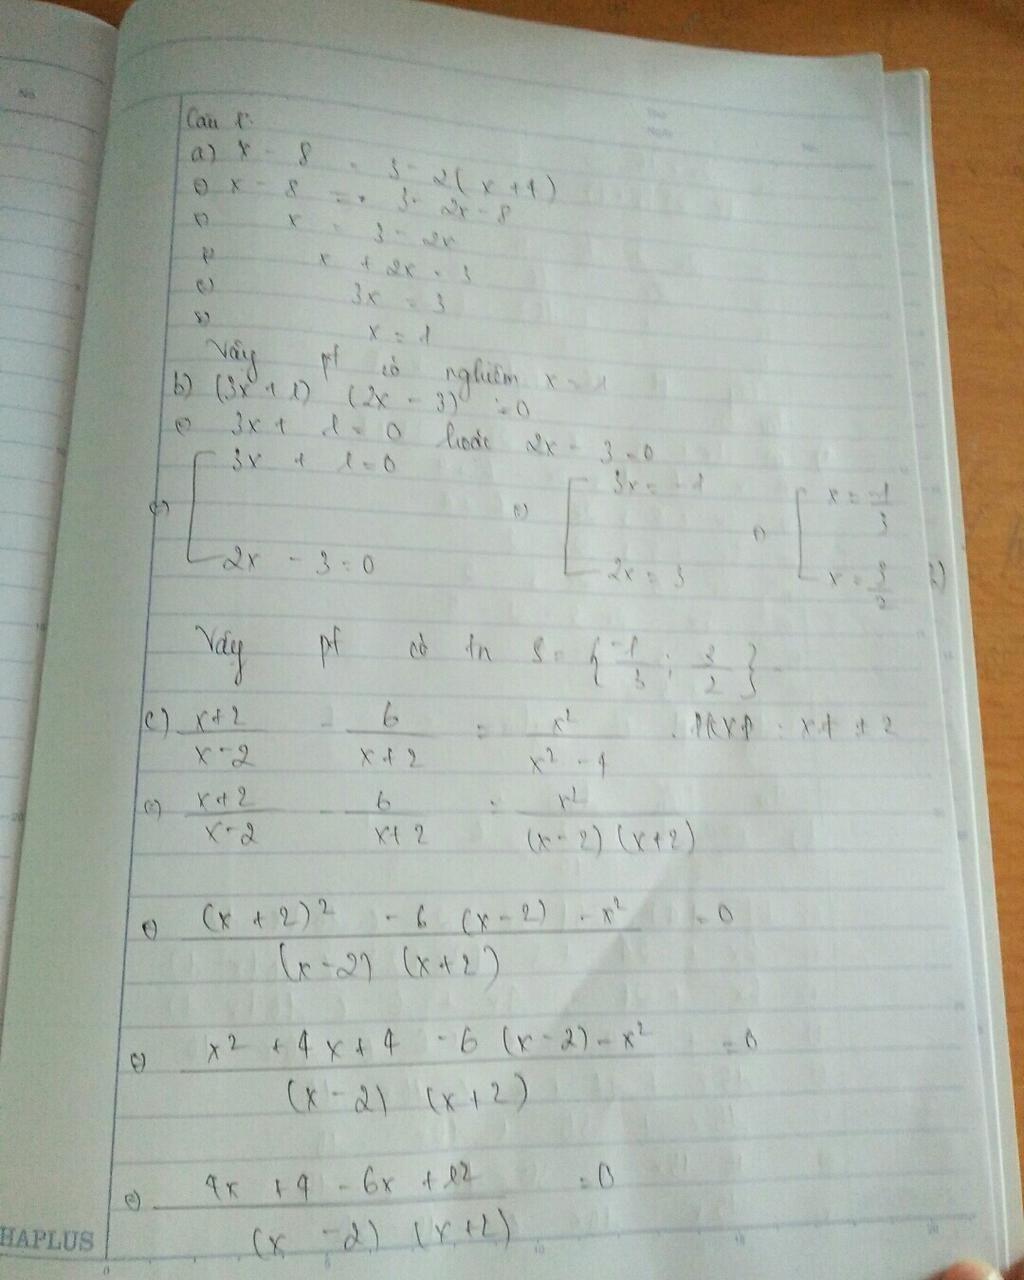 Câu 1:
a) x - 8 = 3 - 2(x + 4)
⇔ x - 8 = 3 - 2x - 8
⇔ x = 3 - 2x
⇔ x + 2x = 3
⇔ 3x = 3
⇔ x = 1
Vậy pt có nghiệm x = 1
b) (3x + 1) (2x - 3) = 0
⇔ 3x + 1 = 0 hoặc 2x - 3 = 0
⇔ [ 3x + 1 = 0 ⇔ [ 3x = -1 ⇔ [ x = -1/3
2x - 3 = 0 2x = 3 x = 3/2
Vậy pt có tn S = { -1/3 ; 3/2 }
c) x+2/x-2 - 6/x+2 = x²/x² - 4 . ĐKXĐ : x ≠ ± 2
⇔ x+2/x-2 - 6/x+2 = x²/(x-2)(x+2)
⇔ (x + 2)² - 6 (x - 2) - x² / (x - 2) (x + 2) = 0
⇔ x² + 4x + 4 - 6 (x - 2) - x² / (x - 2) (x + 2) = 0
⇔ 4x + 4 - 6x + 12 / (x - 2) (x + 2) = 0
HAPLUS